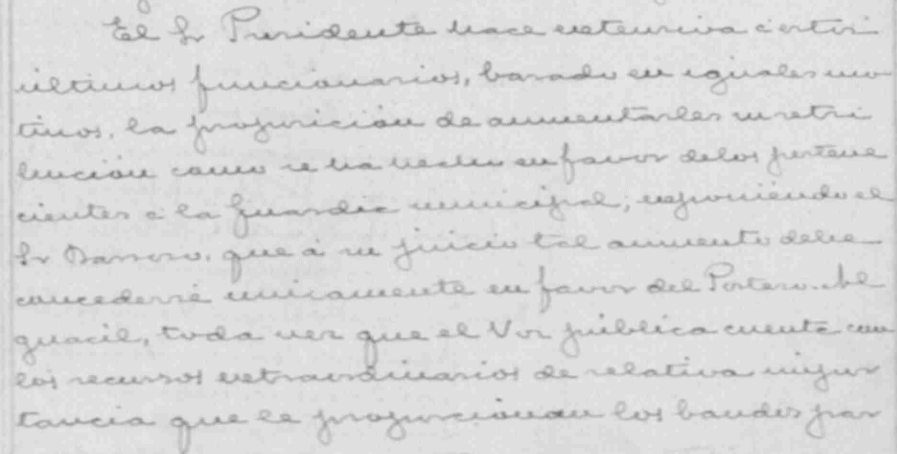 El Sr Presidente hace extensiva á estos
últimos funcionarios, basado en iguales mo
tivos, la proposición de aumentarles su retri
bución como se ha hecho en favor de los pertene
cientes á la Guardia municipal; exponiéndo el
Sr Barroso, que á su juicio tal aumento debe
concederse unicamente en favor del Portero-Al
guacil, toda vez que el Voz pública cuenta con
los recursos extraordinarios de relativa impor
tancia que le proporcionan los bandos par